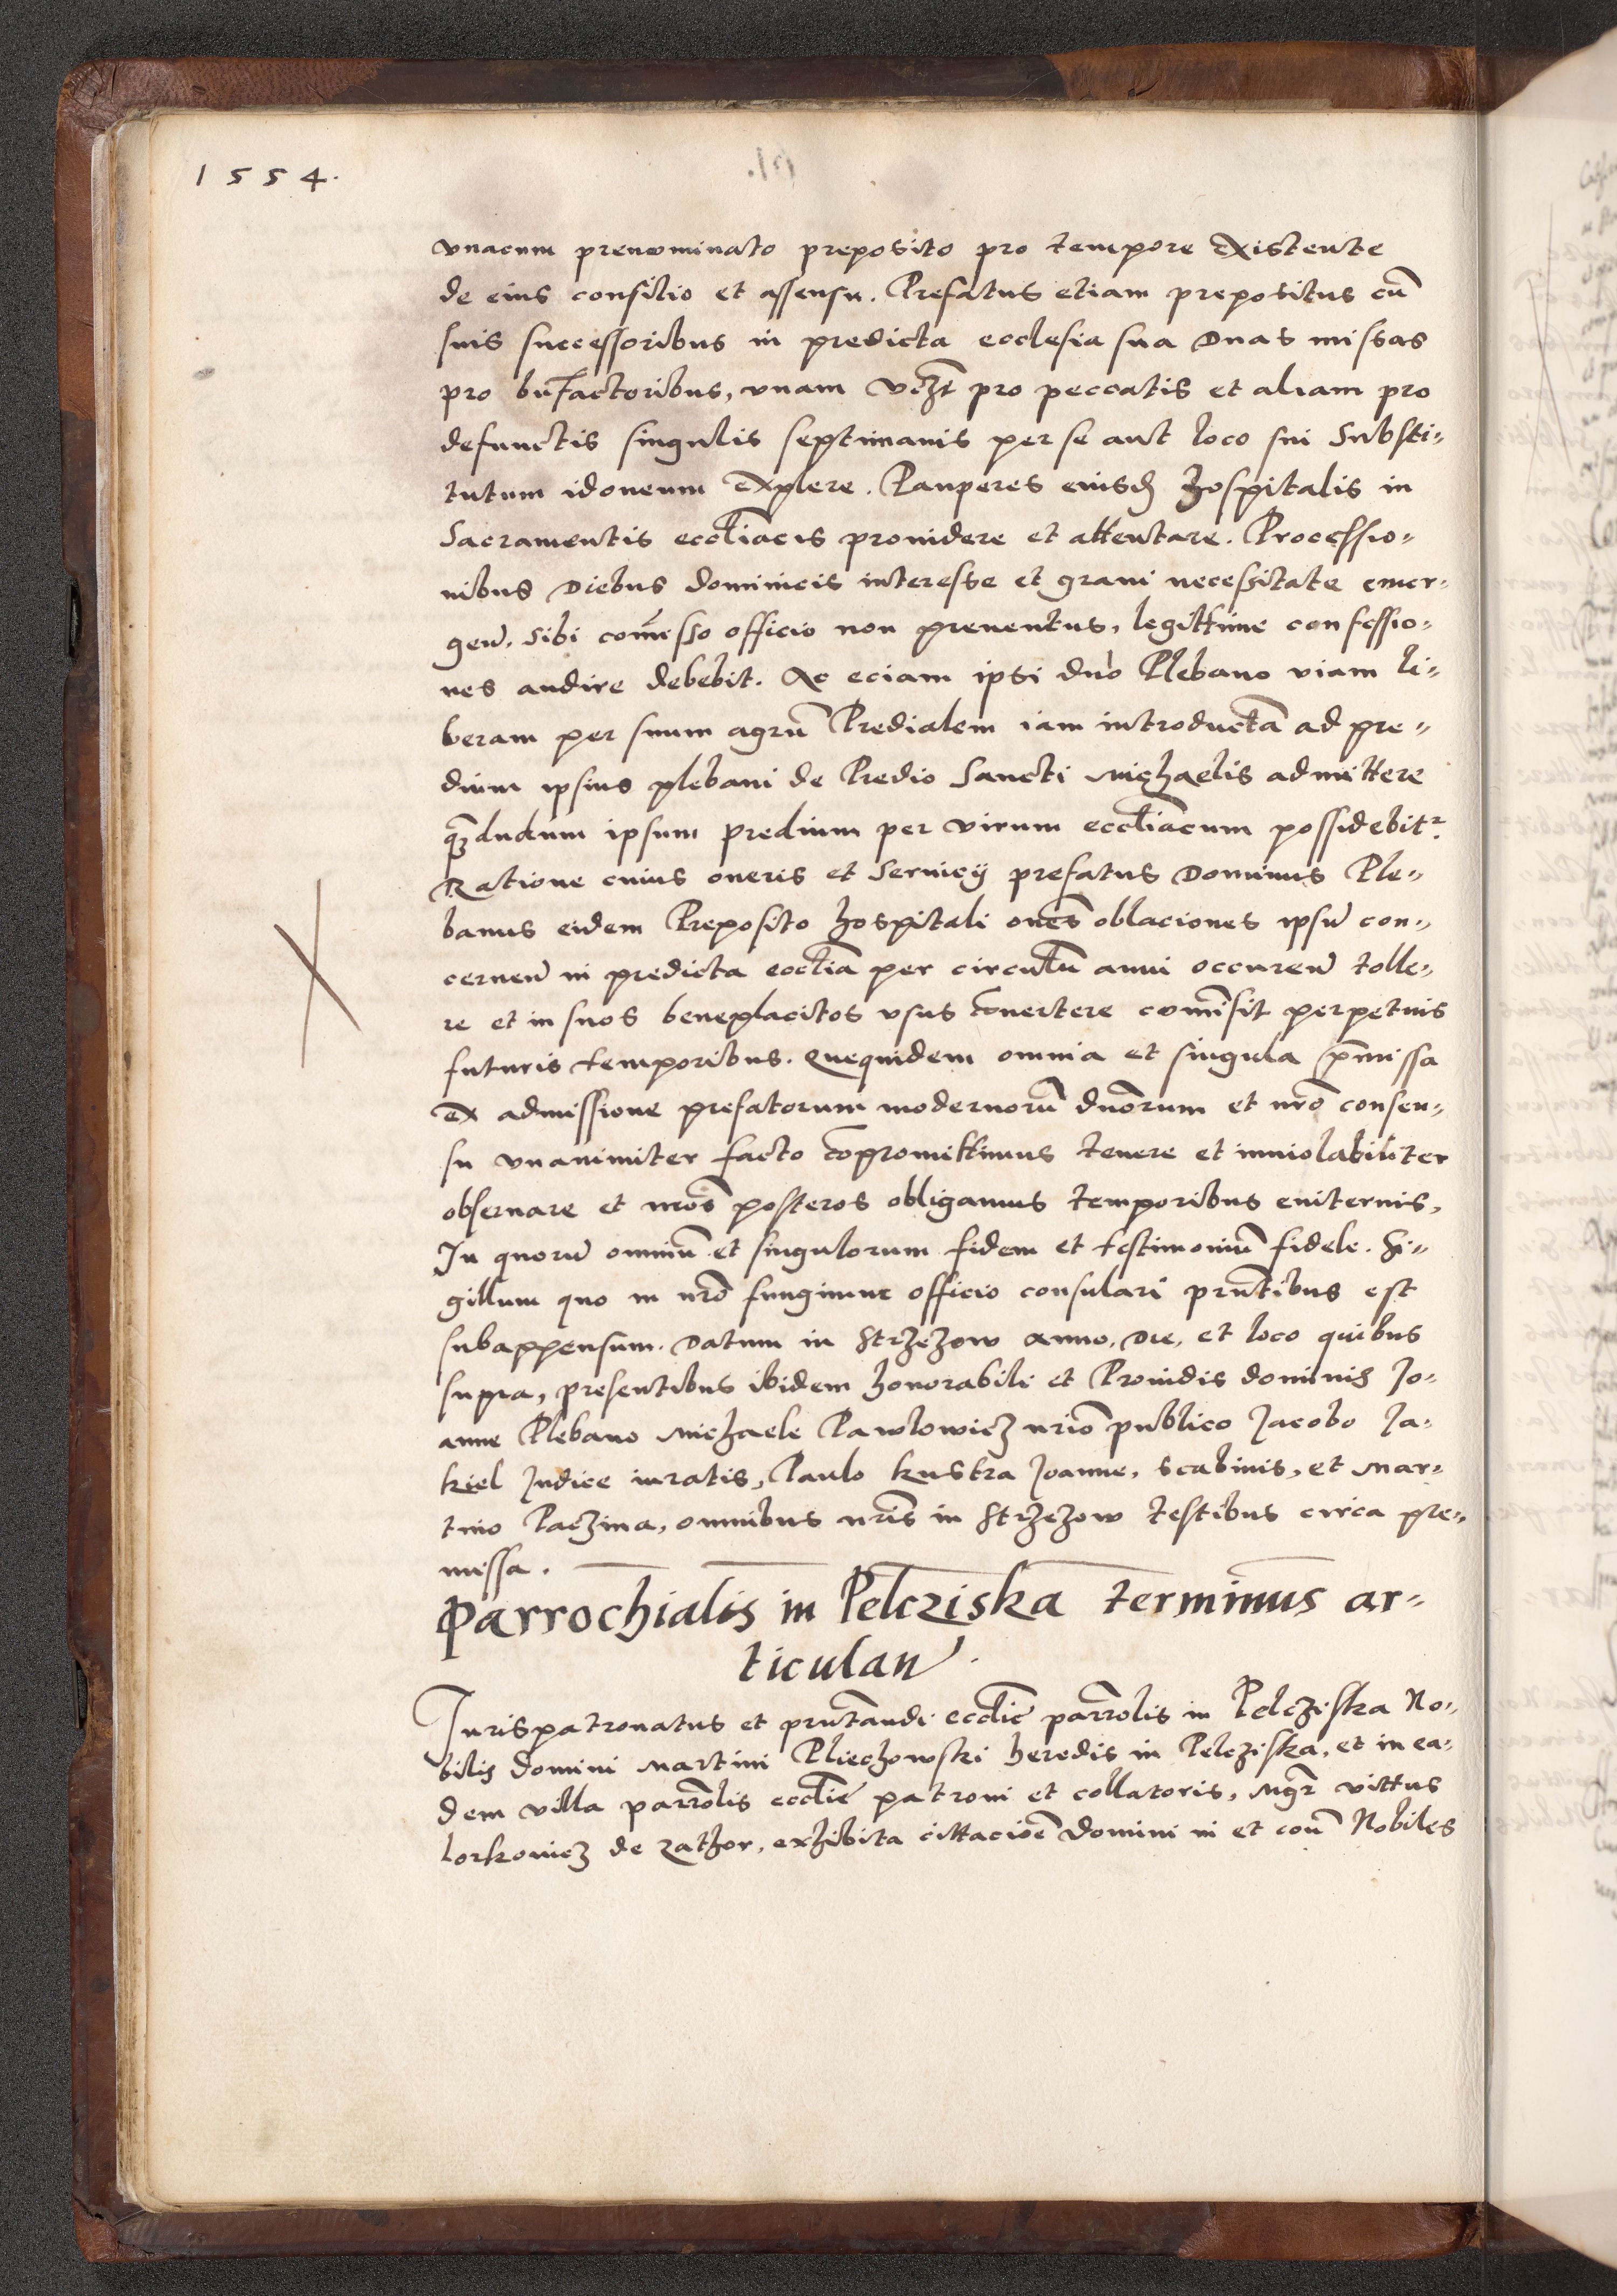 1554.
vnacum prenominato preposito pro tempore existente
de eius consilio et assensu. Prefatus etiam prepositus cū
suis successoribus in predicta ecclesia sua duas missas
pro bn̄factoribus, vnam vcꝫt pro peccatis et aliam pro
defunctis singulis septimanis per se aut loco sui Substi-
tutum idoneum explere. Pauperes eiusdꝫ hospitalis in
Sacramentis eccl̄iacis prouidere et attentare. Processio-
nibus diebus dominicis interesse et graui necessitate emer-
gen̄. sibi com̄isso officio non preuentus, legittime confessio-
nes audire debebit. Ac eciam ipsi dn̄o Plebano viam li-
beram per suum agrū Predialem iam introductā ad pre-
dium ipsius plebani de Predio Sancti Michaelis admittere
qꝫdudum ipsum predium per virum eccl̄iacum possidebitr.
Ratione cuius oneris et seruicij prefatus Dominus Ple-
banus eidem Preposito hospitali om̄es oblaciones ipsū con-
cernen̄ in predicta eccl̄ia per circulū anni occuren̄ tolle-
re et in suos beneplacitos vsus cōuertere com̄isit perpetuis
futuris temporibus. Quequidem omnia et singula p̄missa
ex admissione prefatorum modernorū dn̄orum et nr̄o consen-
su vnanimiter facto cōpromittimus tenere et inuiolabiliter
obseruare et nr̄os posteros obligamus temporibus euiternis.
In quorū omniū et singulorum fidem et testimoniū fidele. Si-
gillum quo in nr̄o fungimur officio consulari pn̄tibus est
subappensum. Datum in Strzezow anno, die, et loco quibus
supra, presentibus ibidem honorabili et Prouidis dominis Jo-
anne Plebano Michaele Pawlowicz nr̄io publico Jacobo Ja-
kiel Judice iuratis, Paulo Kustra Joanne, scabinis, et Mar-
tino Paczina, omnibus nr̄is in Strzezow testibus circa pre-
missa.
Parrochialis in Pelcziska terminus ar-
ticulan̄.
Jurispatronatus et pn̄tandi eccl̄ie parr̄olis in Pelcziska No-
bilis domini Martini Pliechowski heredis in Pelcziska, et in ea-
dem villa parr̄olis eccl̄ie patroni et collatoris, Mgr̄ vittus
Lorkouicz de Zathor, exhibita cittacioē domini in et cont̄ Nobiles